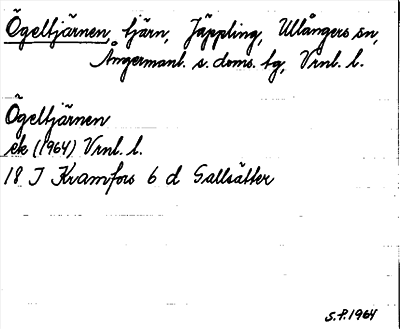 Ögeltjärnen, tjärn, Jäppling, Ullångers sn,
Ångermanl. s. doms. tg, Vrnl. l.
Ögeltjärnen
ek (1964) Vrnl. l.
18 J Kramfors 6 d Gallsätter
S.P. 1964